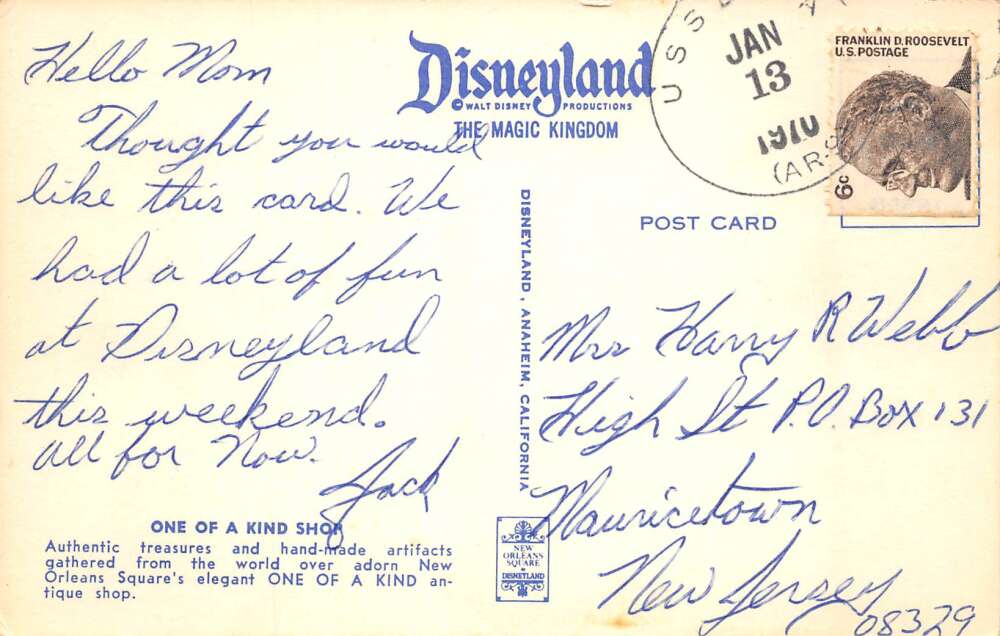 Hello Mom
Thought you would
like this card. We
had a lot of fun
at Disneyland
this weekend.
All for Now.
Jack
ONE OF A KIND SHOP
Authentic treasures and hand-made artifacts
gathered from the world over adorn New
Orleans Square's elegant ONE OF A KIND an-
tique shop.
Disneyland
© WALT DISNEY PRODUCTIONS
THE MAGIC KINGDOM
DISNEYLAND, ANAHEIM, CALIFORNIA
NEW
ORLEANS
SQUARE
DISNEYLAND
POST CARD
USS
JAN
13
1970
(ARS
FRANKLIN D. ROOSEVELT
U.S. POSTAGE
6c
Mrs Harry R Webb
High St P.O. Box 131
Mauricetown
New Jersey
08329